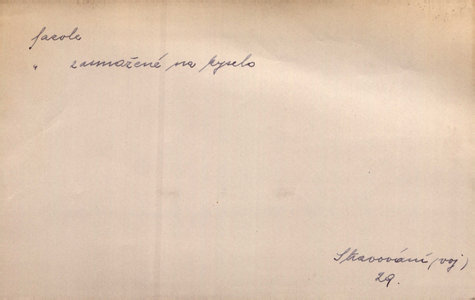 fasole
" zasmažené na kyselo
Stravování (voj)
29.